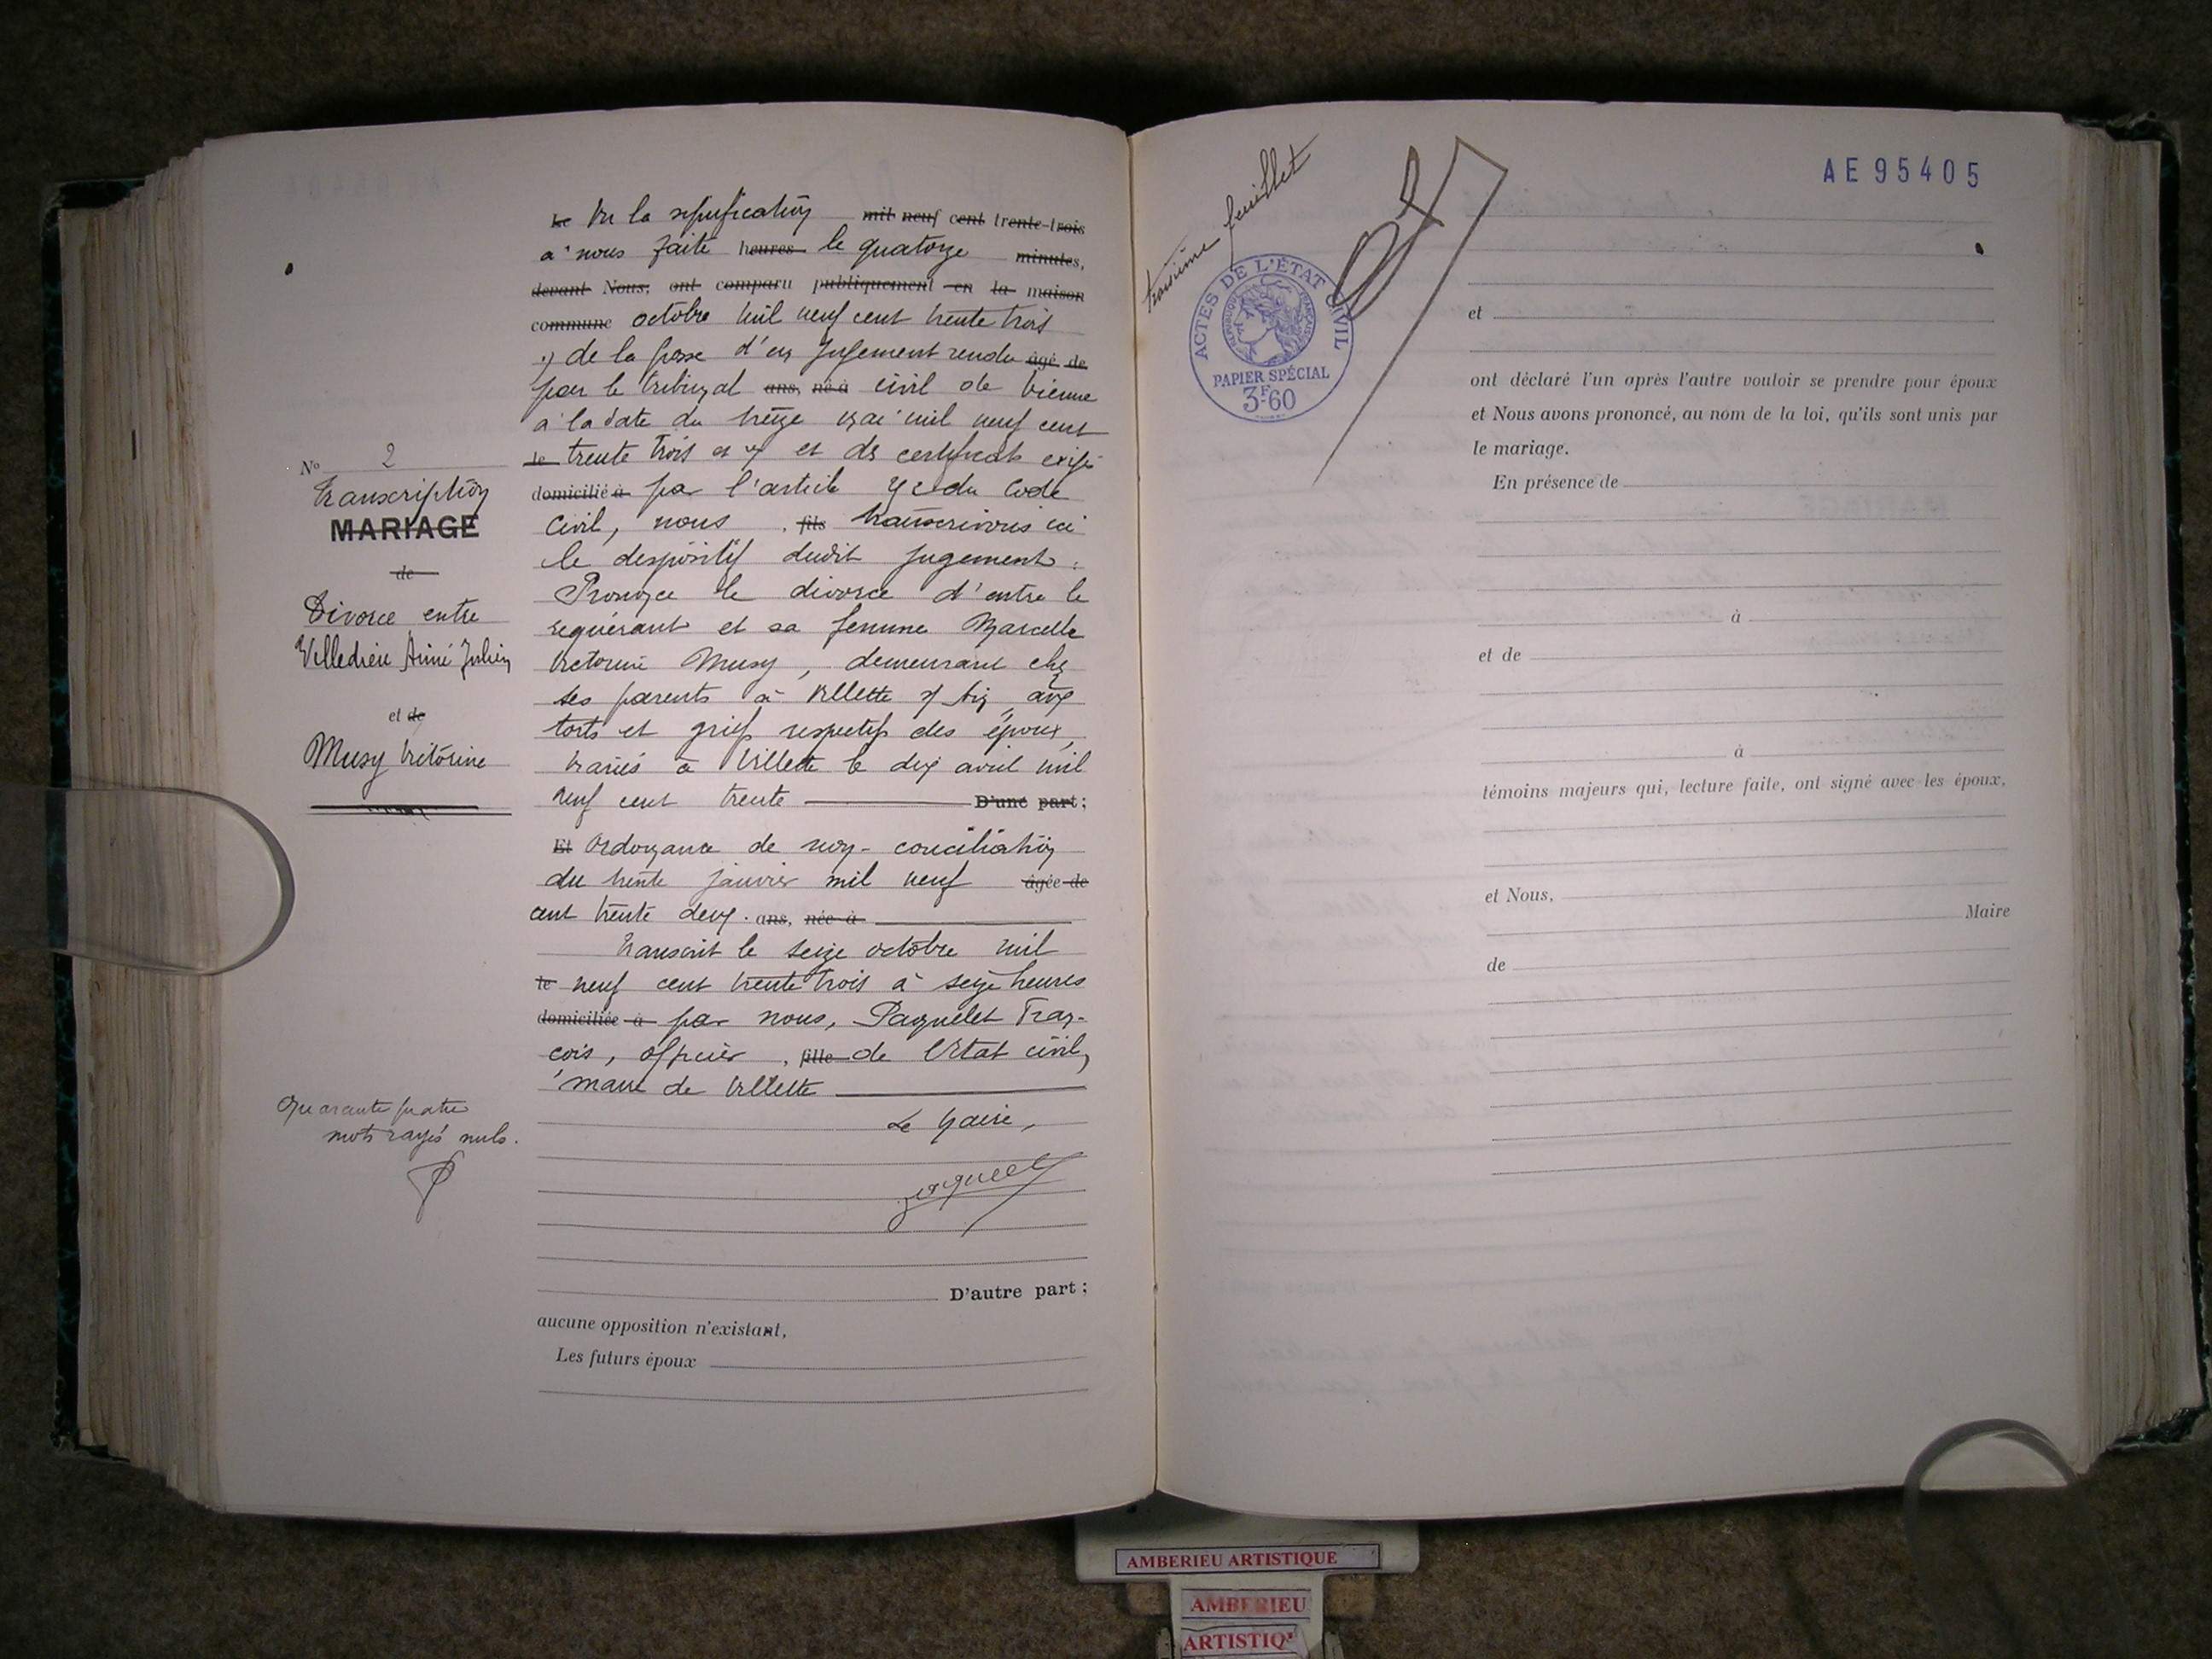 N° 2
Transcription
MARIAGE
de
Divorce entre
Villedieu Aimé Julien
et de
Musy Victorine
Quarante quatre
mots rayés nuls.
Le Vu la signification mil neuf cent trente-trois
à nous faite heures le quatorze minutes,
devant Nous, ont comparu publiquement en la maison
commune octobre mil neuf cent trente trois
de la grosse d'un jugement rendu âgé de
par le tribunal ans, né à civil de Vienne
à la date du treize mai mil neuf cent
le trente trois et des certificats exigés
domicilié à par l'article du Code
Civil, nous , fils transcrivons ici
le dispositif dudit jugement :
Prononce le divorce d'entre le
requérant et sa femme Marcelle
Victorine Musy, demeurant chez
ses parents à Villette s/ Ain, aux
torts et griefs respectifs des époux,
mariés à Villette le dix avril mil
neuf cent trente D'une part ;
Et Ordonnance de non-conciliation
du trente janvier mil neuf âgée de
cent trente deux. ans, née à
Transcrit le seize octobre mil
le neuf cent trente trois à seize heures
domiciliée à par nous, Paquelet Fran-
çois, officier , fille de l'Etat civil,
maire de Villette
Le Maire,
D'autre part ;
aucune opposition n'existant,
Les futurs époux
troisième feuillet
ACTES DE L'ÉTAT CIVIL
RÉPUBLIQUE FRANÇAISE
PAPIER SPÉCIAL
3F.60
AE95405
et
ont déclaré l'un après l'autre vouloir se prendre pour époux
et Nous avons prononcé, au nom de la loi, qu'ils sont unis par
le mariage.
En présence de
à
et de
à
témoins majeurs qui, lecture faite, ont signé avec les époux,
et Nous,
Maire
de
AMBERIEU ARTISTIQUE
AMBERIEU
ARTISTIQ